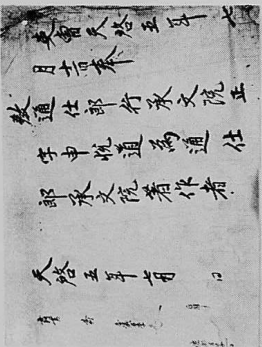 吏曹天啓五年七
月十四日奉
敎通仕郎行承文院正
字申悅道爲通仕
郎承文院著作者
天啓五年七月 日